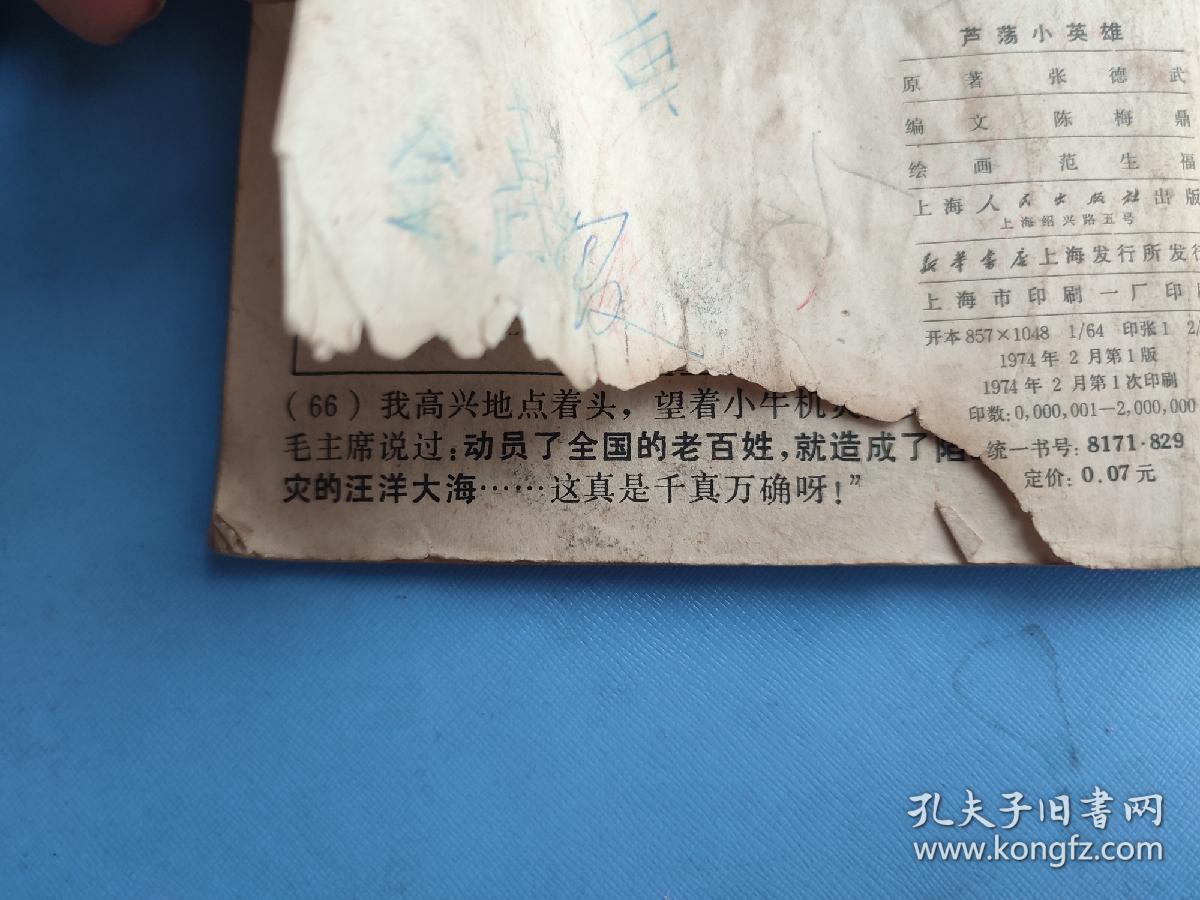 芦荡小英雄
原著 张德武
编文 陈梅鼎
绘画 范生福
上海人民出版社出版
上海绍兴路五号
新华书店上海发行所发行
上海市印刷一厂印
开本 857×1048 1/64 印张 1 2/
1974 年 2 月第 1 版
1974 年 2 月第 1 次印刷
印数: 0,000,001—2,000,000
统一书号: 8171·829
定价: 0.07 元
(66) 我高兴地点着头，望着小牛机
毛主席说过：动员了全国的老百姓，就造成了陷
灾的汪洋大海……这真是千真万确呀！”
孔夫子旧书网
www.kongfz.com